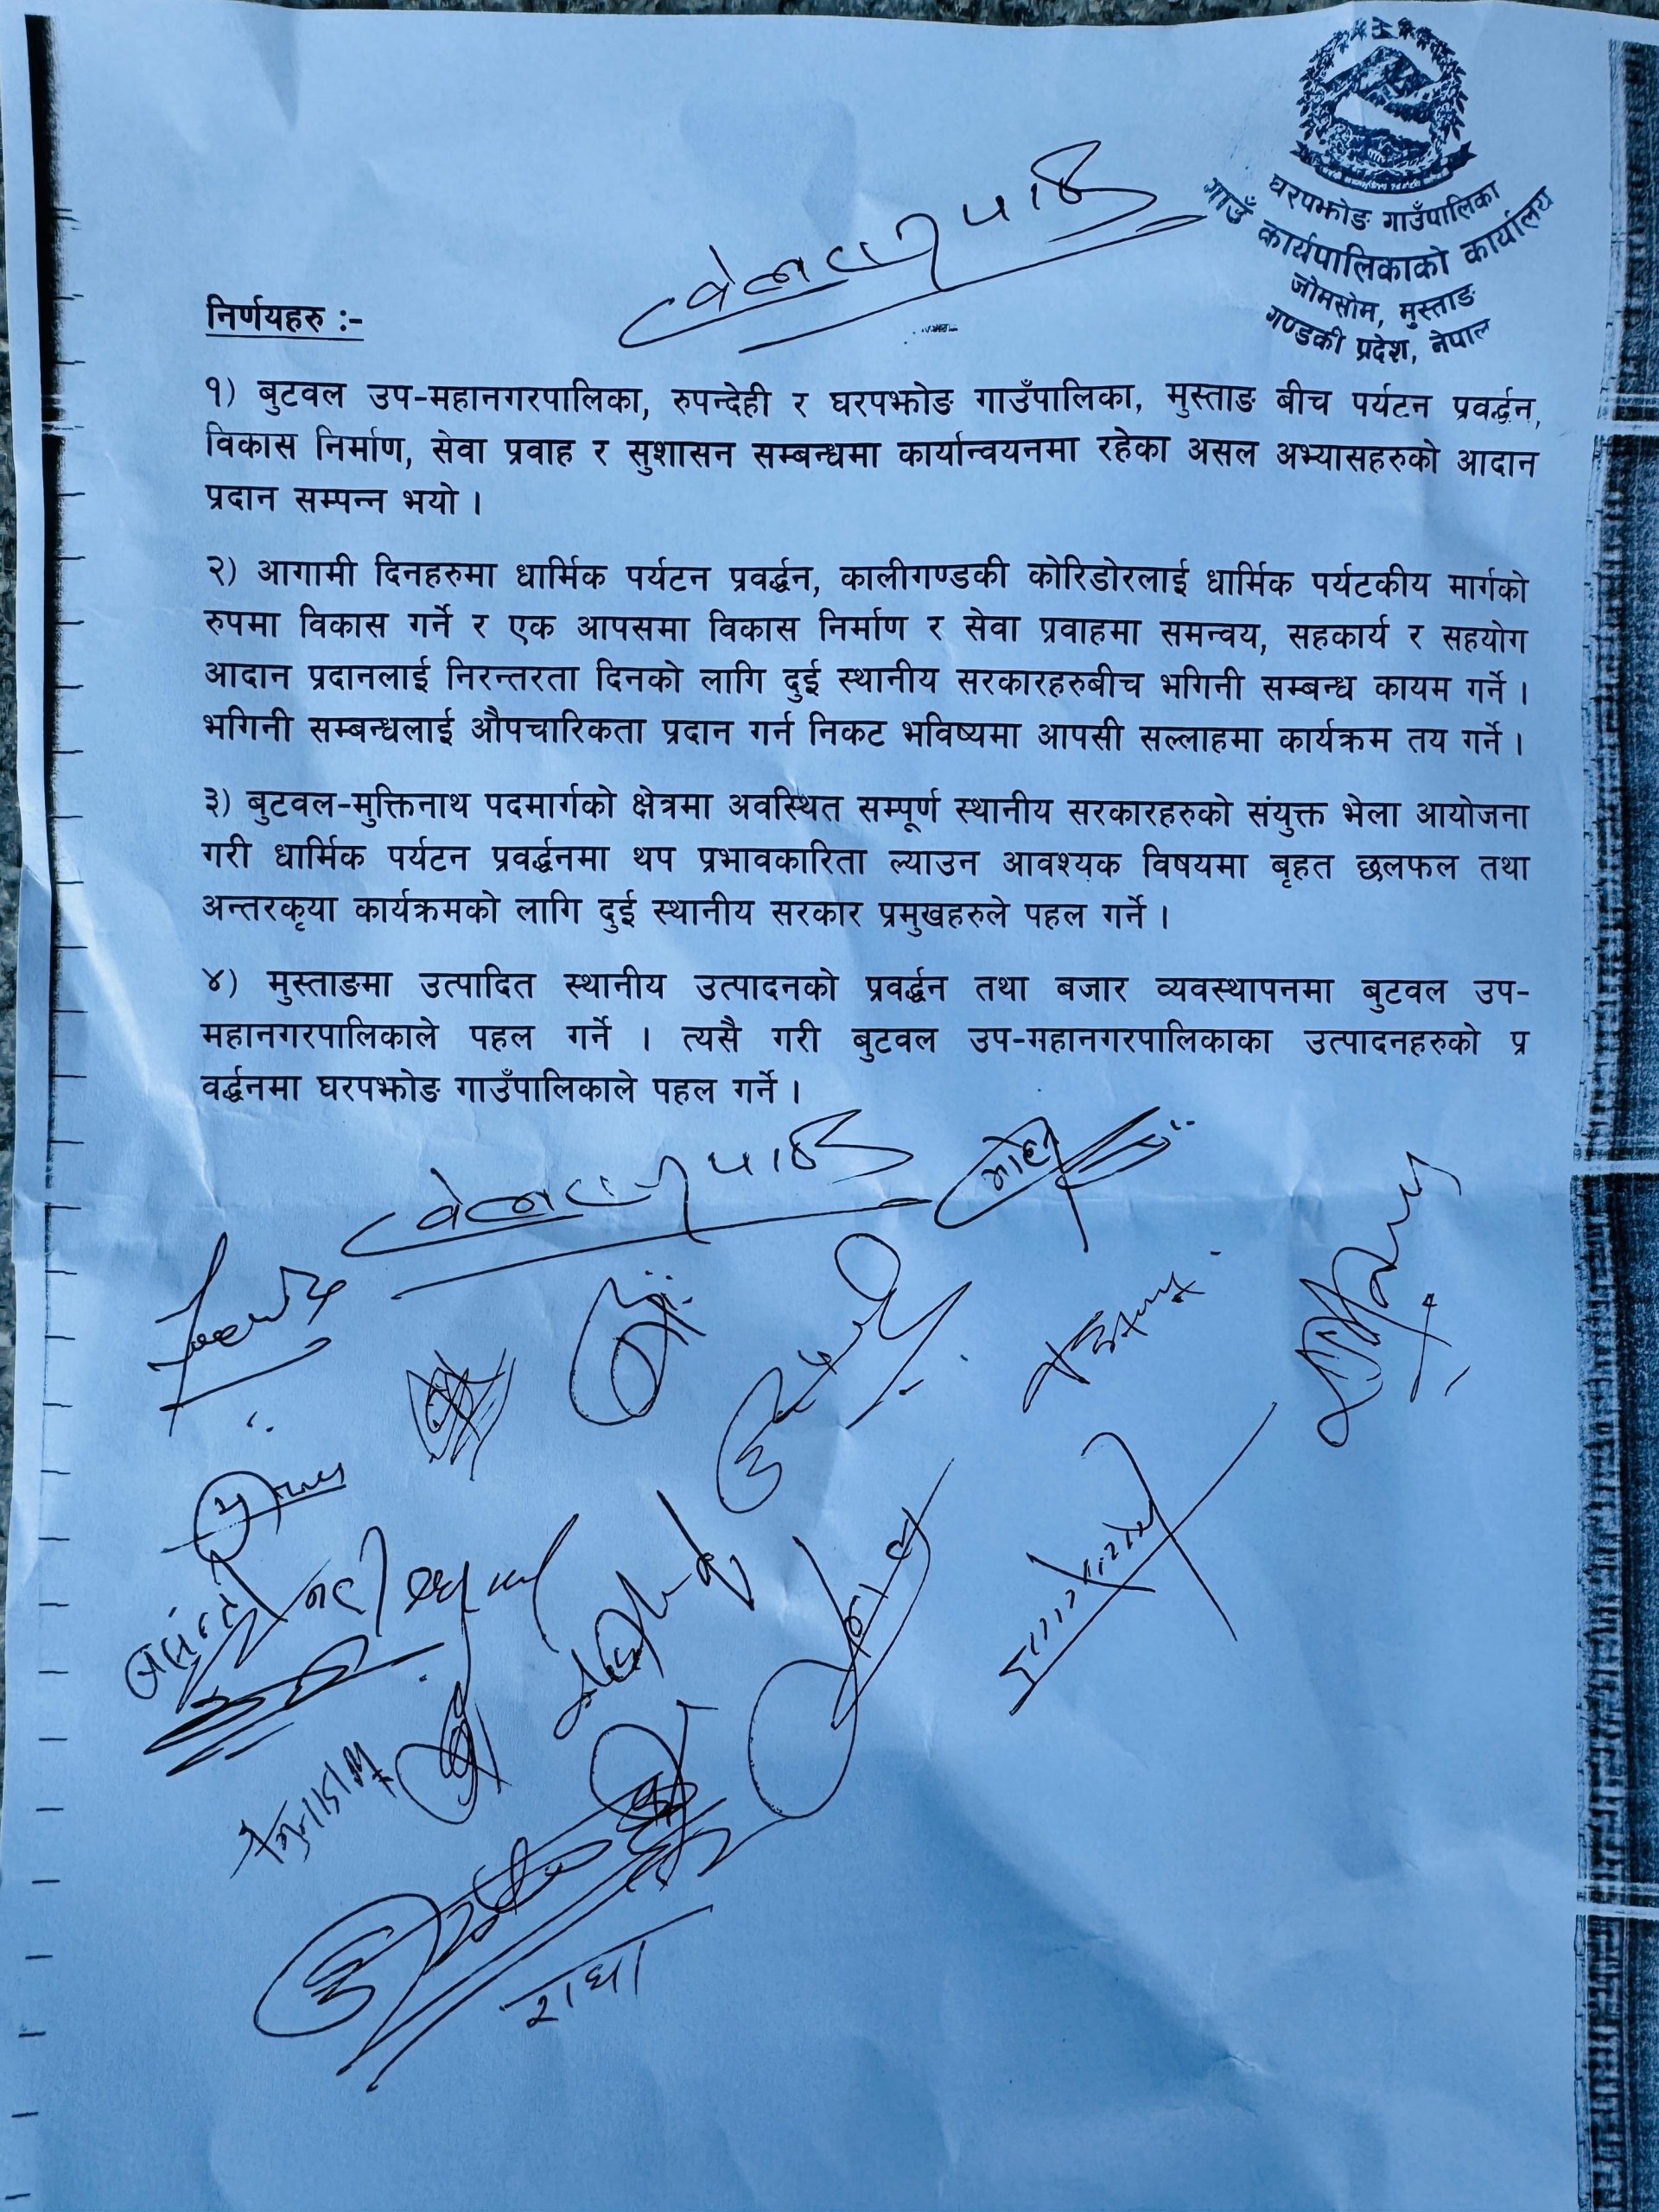 घरपझोङ गाउँपालिका
गाउँ कार्यपालिकाको कार्यालय
जोमसोम, मुस्ताङ
गण्डकी प्रदेश, नेपाल
निर्णयहरु :-
१) बुटवल उप-महानगरपालिका, रुपन्देही र घरपझोङ गाउँपालिका, मुस्ताङ बीच पर्यटन प्रवर्द्धन,
विकास निर्माण, सेवा प्रवाह र सुशासन सम्बन्धमा कार्यान्वयनमा रहेका असल अभ्यासहरुको आदान
प्रदान सम्पन्न भयो ।
२) आगामी दिनहरुमा धार्मिक पर्यटन प्रवर्द्धन, कालीगण्डकी कोरिडोरलाई धार्मिक पर्यटकीय मार्गको
रुपमा विकास गर्ने र एक आपसमा विकास निर्माण र सेवा प्रवाहमा समन्वय, सहकार्य र सहयोग
आदान प्रदानलाई निरन्तरता दिनको लागि दुई स्थानीय सरकारहरुबीच भगिनी सम्बन्ध कायम गर्ने ।
भगिनी सम्बन्धलाई औपचारिकता प्रदान गर्न निकट भविष्यमा आपसी सल्लाहमा कार्यक्रम तय गर्ने ।
३) बुटवल-मुक्तिनाथ पदमार्गको क्षेत्रमा अवस्थित सम्पूर्ण स्थानीय सरकारहरुको संयुक्त भेला आयोजना
गरी धार्मिक पर्यटन प्रवर्द्धनमा थप प्रभावकारिता ल्याउन आवश्यक विषयमा बृहत छलफल तथा
अन्तरकृया कार्यक्रमको लागि दुई स्थानीय सरकार प्रमुखहरुले पहल गर्ने ।
४) मुस्ताङमा उत्पादित स्थानीय उत्पादनको प्रवर्द्धन तथा बजार व्यवस्थापनमा बुटवल उप-
महानगरपालिकाले पहल गर्ने । त्यसै गरी बुटवल उप-महानगरपालिकाका उत्पादनहरुको प्र
वर्द्धनमा घरपझोङ गाउँपालिकाले पहल गर्ने ।
राधा